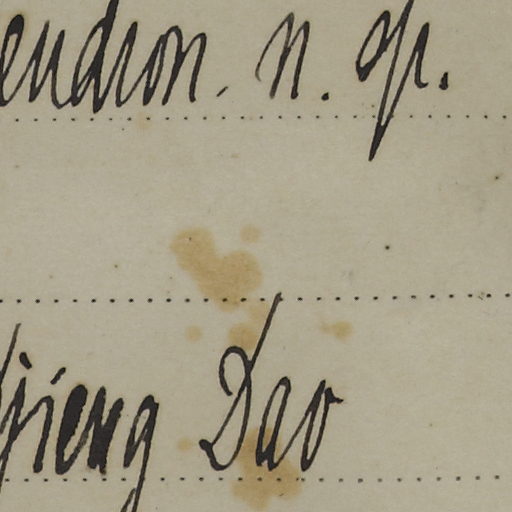 endron. n. sp.
jieng Dao